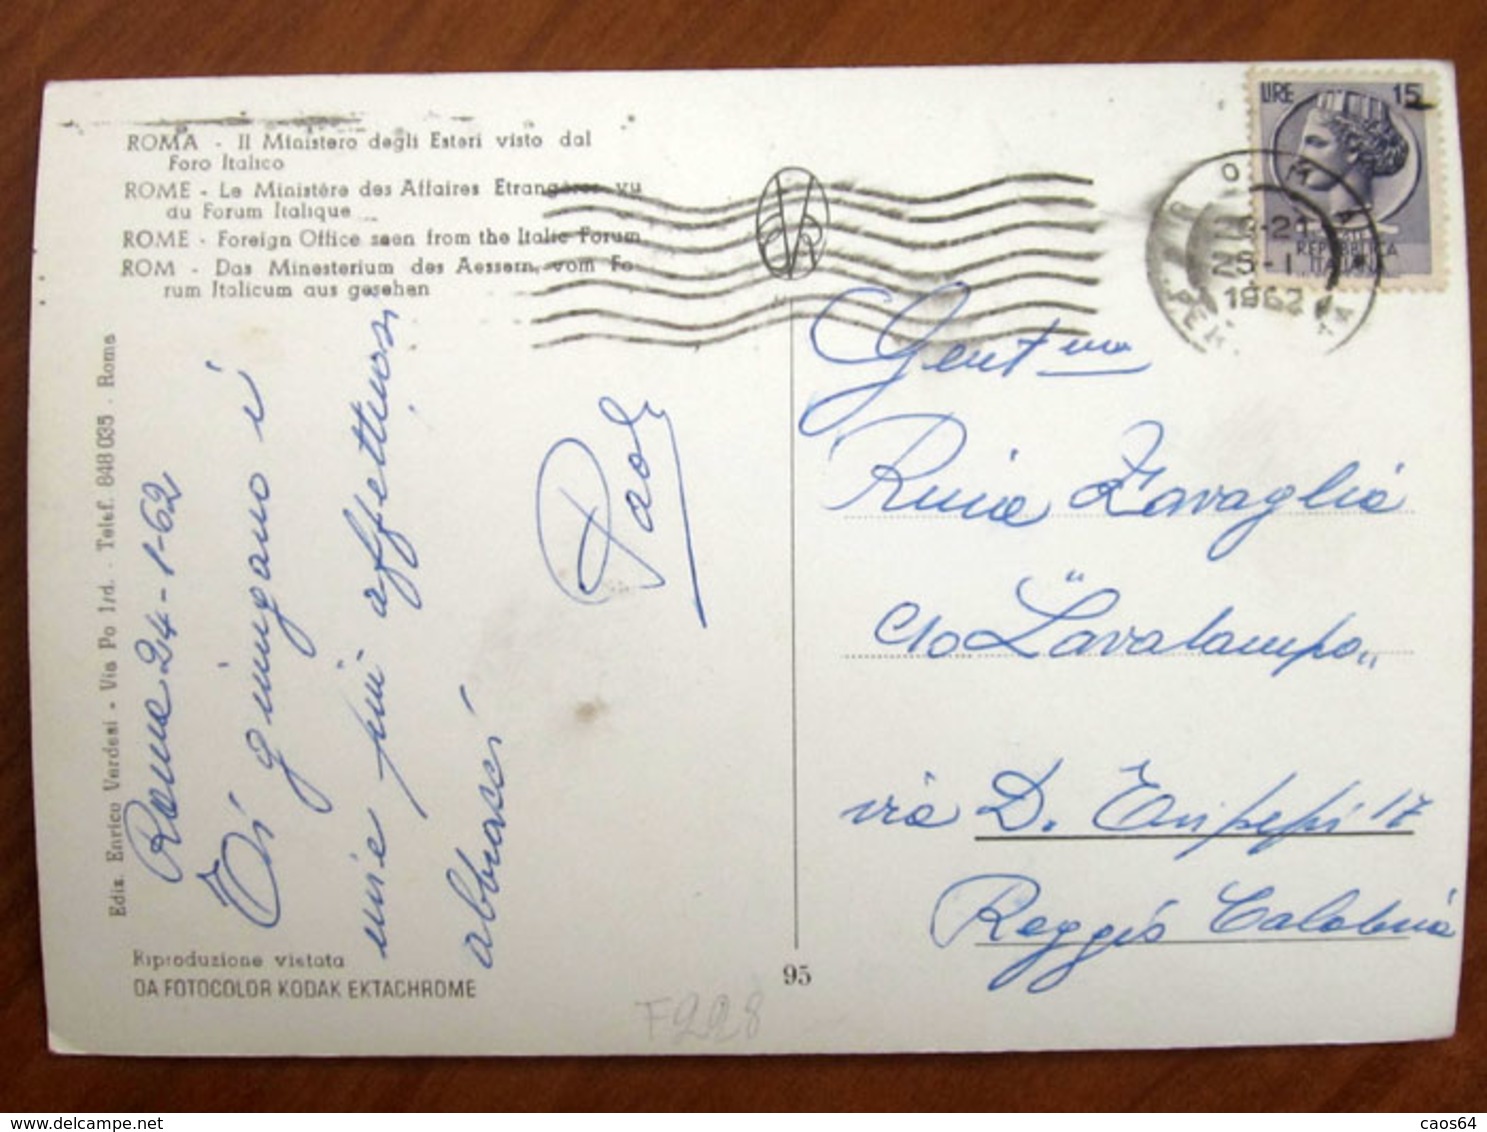 ROMA - Il Ministero degli Esteri visto dal
Foro Italico
ROME - Le Ministère des Affaires Etrangères vu
du Forum Italique
ROME - Foreign Office seen from the Italic Forum
ROM - Das Minesterium des Aessern, vom Fo-
rum Italicum aus gesehen
Ediz. Enrico Verdesi - Via Po 1/d. - Telef. 848 035 - Roma
Roma 24-1-62
Ti giungano i
miei più affettuosi
abbracci
Paol
Riproduzione vietata
DA FOTOCOLOR KODAK EKTACHROME
95
F228
LIRE 15
REPUBBLICA
ITALIANA
ROMA
1962
Gent ma
Zavaglia
c/o "Lavalampo"
via D. 17
Reggio Calabria
caos64